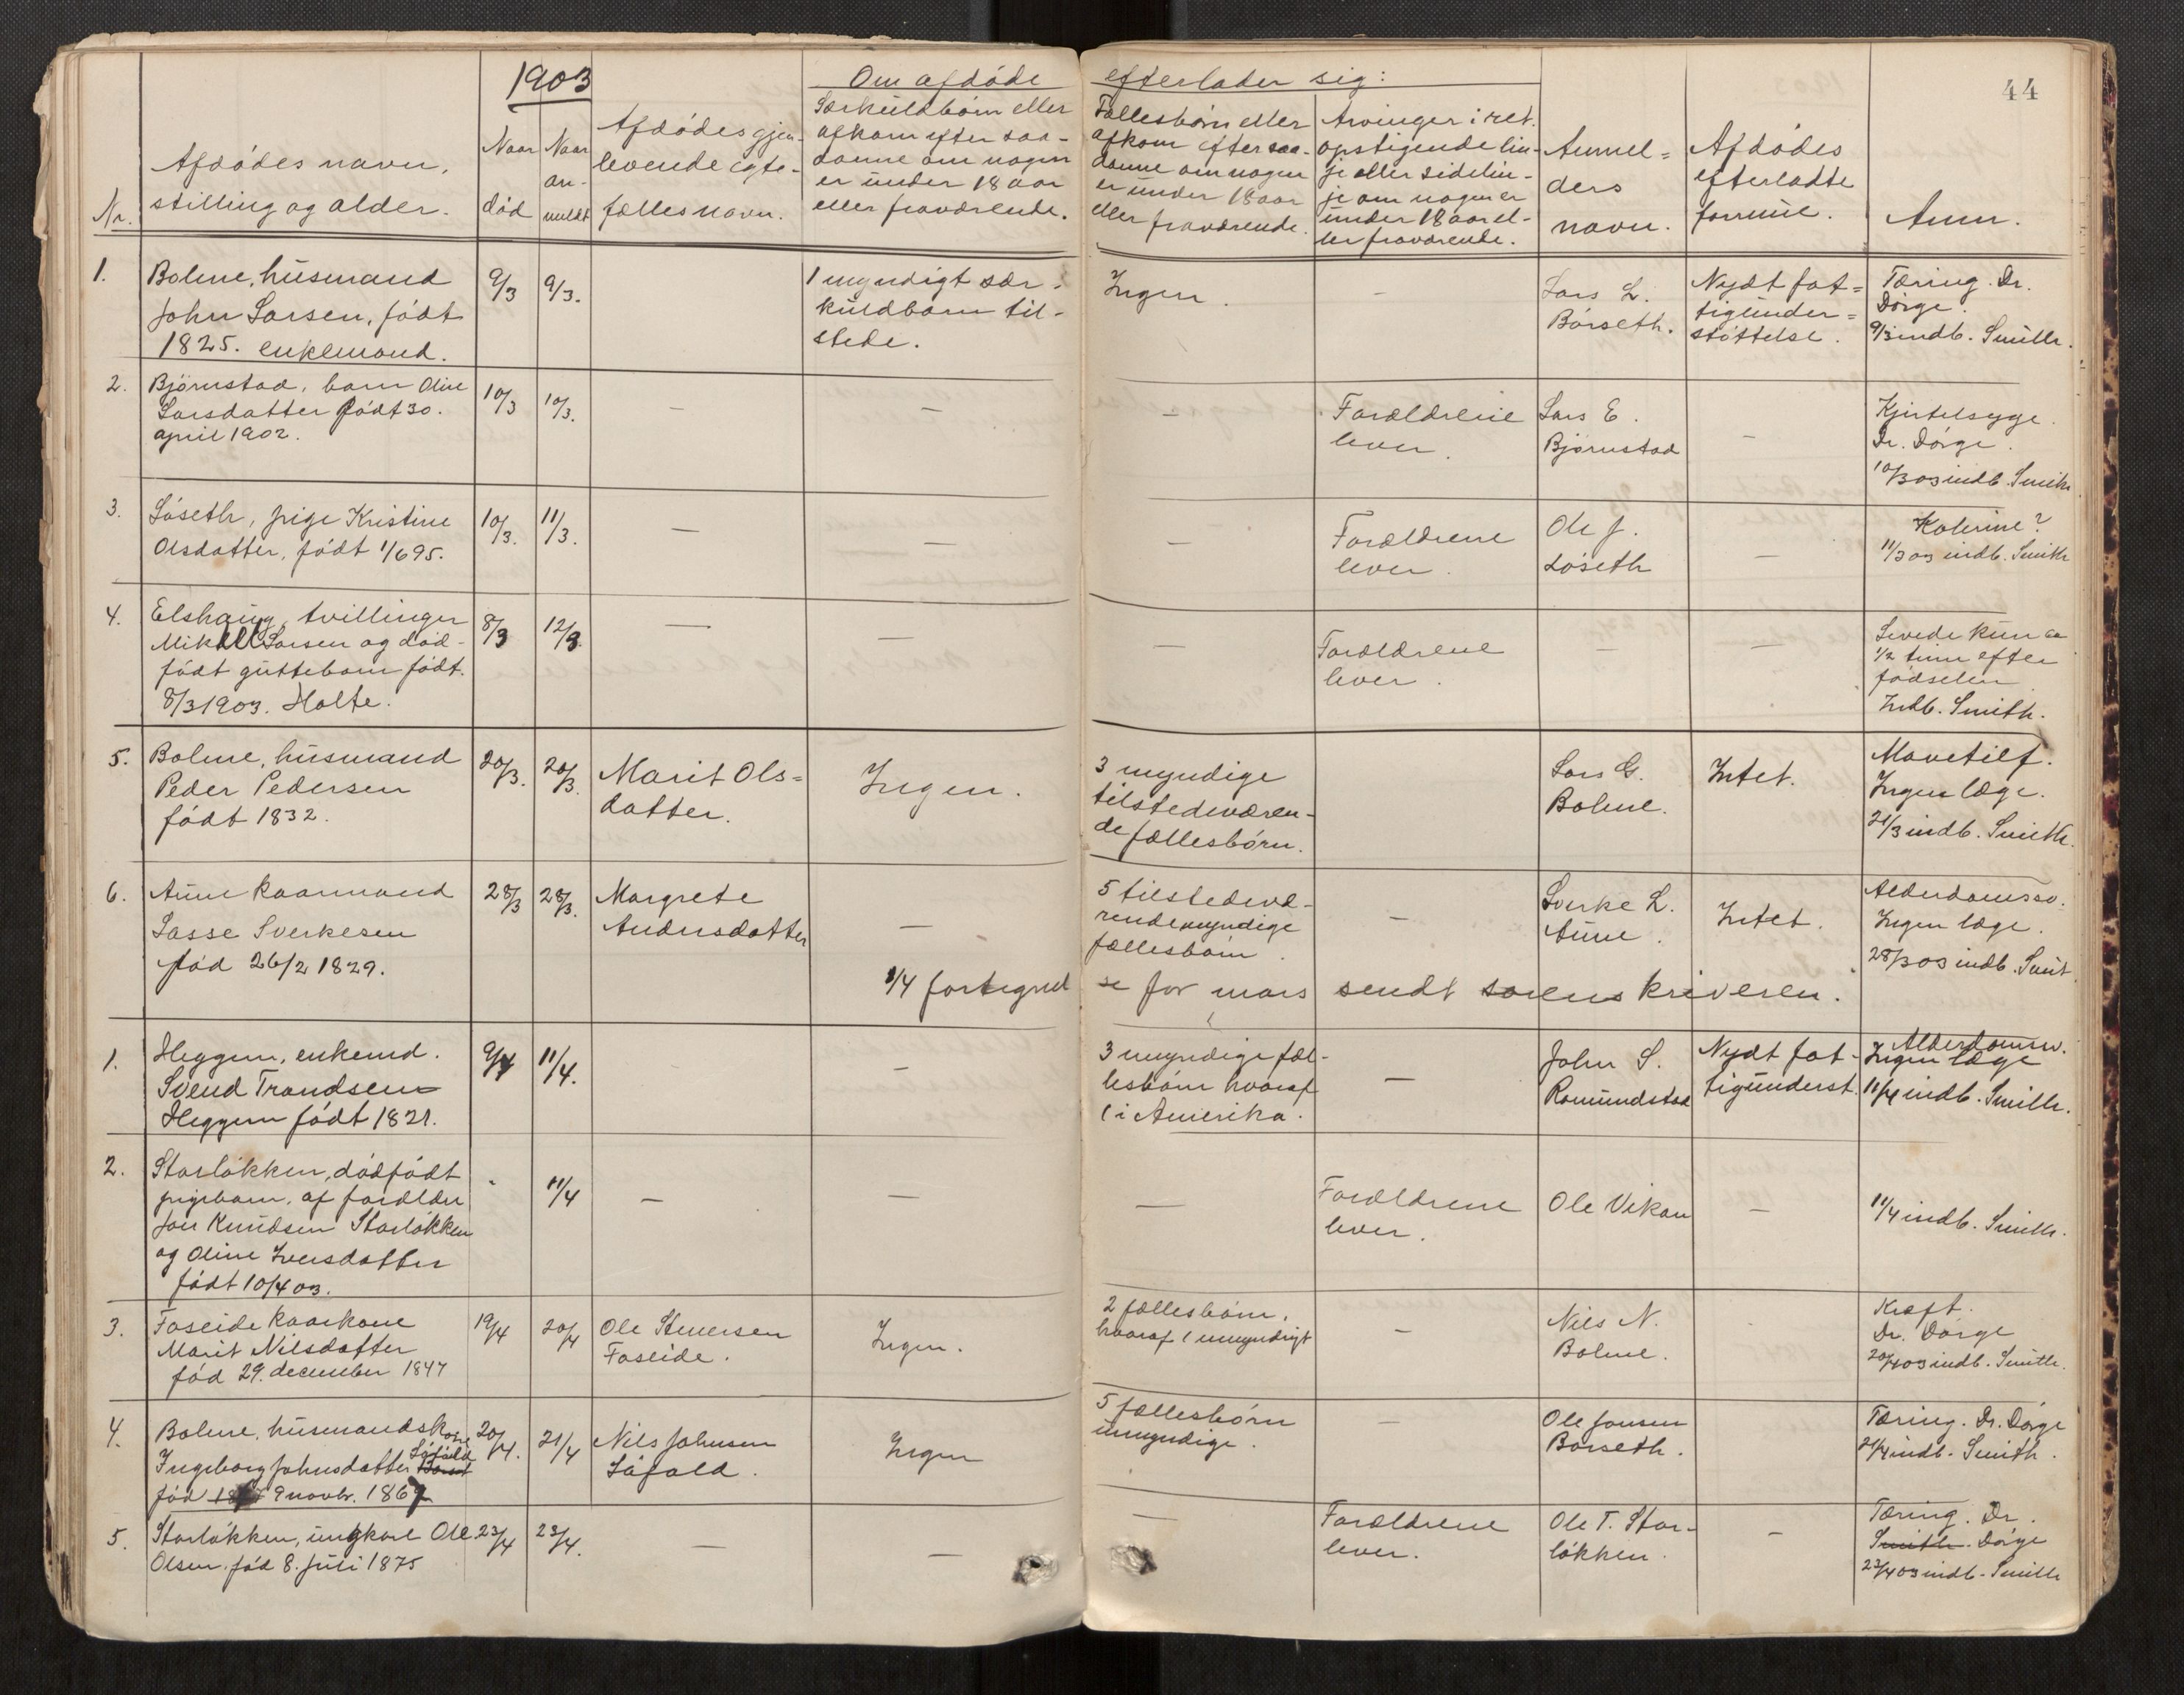 1903
44
Om afdøde efterlader sig:
Nr.
Afdødes navn,
stilling og alder.
Naar
død
Naar
an-
meldt
Afdødes gjen-
levende egte-
fælles navn.
Særkuldbørn eller
afkom efter saa-
danne om nogen
er under 18 aar
eller fraværende.
Fællesbørn eller
afkom efter saa-
danne om nogen
er under 18 aar
eller fraværende.
Arvinger i ret.
opstigende lin-
je eller sidelin-
je om nogen er
under 18 aar el-
ler fraværende.
Anmel=
ders
navn.
Afdødes
efterladte
formue.
Anm.
1.
Bolme, husmand
John Larsen, født
1825. enkemand.
9/3
9/3.
1 myndigt sær-
kuldbarn til-
stede.
Ingen.
—
Lars L.
Børseth.
Nydt fat=
tigunder=
støttelse.
Tæring. Dr.
Dørge.
9/3 indb. Smith.
2.
Bjørnstad, barn Oline
Larsdatter født 30.
april 1902.
10/3
10/3.
—
—
—
Forældrene
lever.
Lars E.
Bjørnstad
—
Kjertelsyge.
Dr. Dørge.
10/3 03 indb. Smith
3.
Løseth, pige Kristine
Olsdatter, født 1/6 95.
10/3.
11/3.
—
—
—
Forældrene
lever.
Ole J.
Løseth
—
Kolerine?
11/3 03 indb. Smith
4.
Elshaug, tvillinger
Mikal Larsen og død-
født guttebarn født.
8/3 1903. Holte.
8/3
12/3.
—
—
—
Forældrene
lever.
—
—
Levede kun ca
1/2 time efter
fødselen
Indb. Smith.
5.
Bolme, husmand
Peder Pedersen
født 1832.
20/3.
20/3.
Marit Ols=
datter.
Ingen.
3 myndige
tilstedeværen-
de fællesbørn.
Lars G.
Bolme.
Intet.
Mavetilf.
Ingen læge.
21/3 indb. Smith.
6.
Aune kaarmand
Lasse Sverkesen
fød 26/2 1829.
28/3
28/3.
Margrete
Andersdatter
—
5 tilstedevæ-
rende myndige
fællesbørn.
—
Sverke L.
Aune.
Intet.
Alderdomssv.
Ingen læge.
28/3 03 indb. Smit
1/4 fortegnelse for mars sendt sorenskriveren.
1.
Heggem, enkemd.
Svend Trondsen
Heggem født 1821.
9/4
11/4.
—
3 myndige fæl-
lesbørn hvoraf
1 i Amerika.
—
John S.
Romundstad
Nydt fat-
tigunderst.
Alderdomssv.
Ingen læge
11/4 indb. Smith.
2.
Storløkken, dødfødt
pigebarn, af forældre
Jon Knudsen Storløkken
og Oline Iversdatter
født 10/4 03.
"
11/4
—
—
—
Forældrene
lever.
Ole Vikan
—
11/4 indb. Smith.
3.
Foseide kaarkone
Marit Nilsdatter
fød 29. december 1847
19/4
20/4
Ole Stenersen
Foseide.
Ingen.
2 fællesbørn,
hvoraf 1 umyndigt
—
Nils N.
Bolme.
Kræft.
Dr. Dørge
20/4 03 indb. Smith.
4.
Bolme, husmandskone
Ingeborg Johnsdatter Løfald
fød 9 novbr. 1867
20/4.
21/4
Nils Johnsen
Løfald.
Ingen
5 fællesbørn
umyndige.
—
Ole Jonsen
Børseth.
Tæring. Dr. Dørge
21/4 indb. Smith.
5.
Storløkken, ungkarl Ole
Olsen fød 8. juli 1875
23/4
23/4.
—
—
—
Forældrene
lever.
Ole T. Stor-
løkken.
—
Tæring. Dr.
Smith. Dørge
23/4 03 indb. Smith